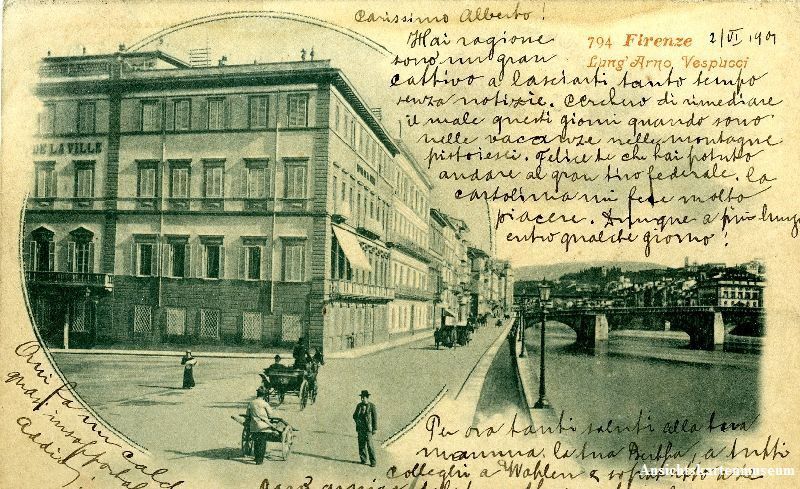 Carissimo Alberto!
794 Firenze
Lung'Arno Vespucci
2/VI 1901
Hai ragione
sono un gran
cattivo a lasciarti tanto tempo
senza notizie. Cercherò di rimediare
il male questi giorni quando sono
nelle vacanze nelle montagne
pistoiesi. Felice te che hai potuto
andare al gran tiro federale. La
cartolina mi fece molto
piacere. Dunque a più lungo
entro qualche giorno!
DE LA VILLE
Qui fa un caldo
quasi insopportabile
addio
Per ora tanti saluti alla cara
mamma, la tua Bertha, a tutti
colleghi a Wohlen e
Ansichtskartenmuseum